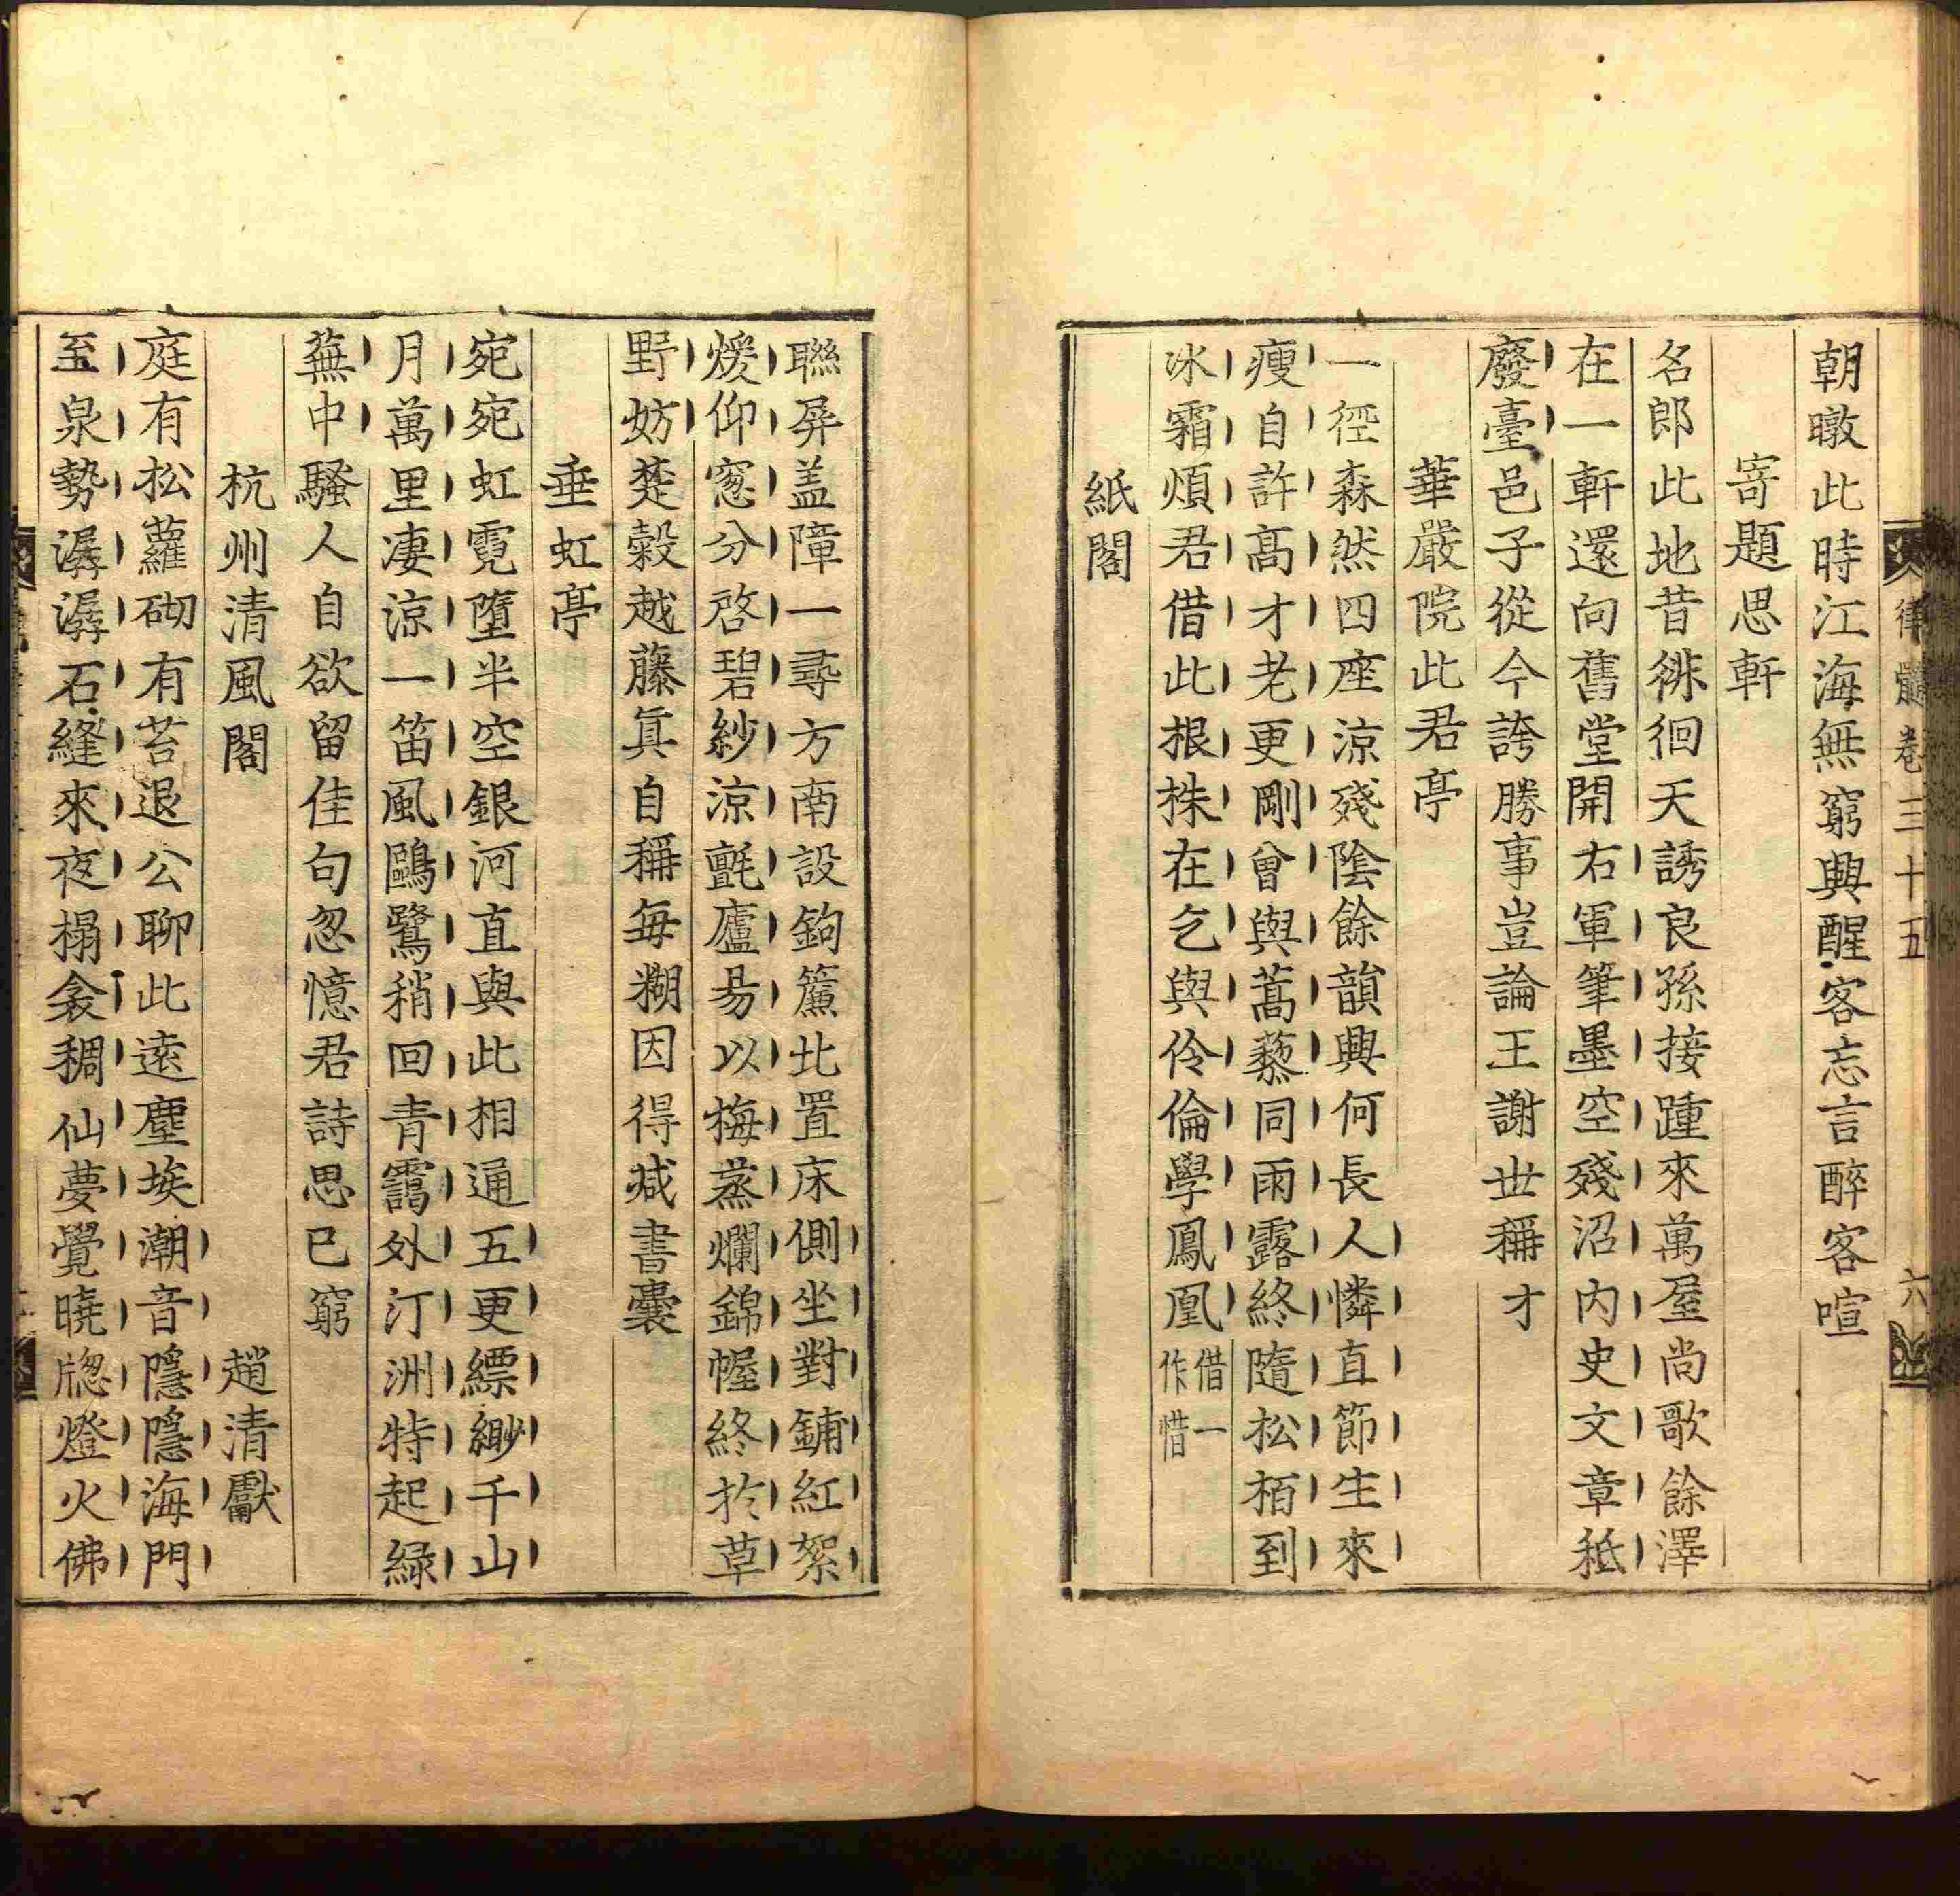 律髓卷三十五
六
朝暾此時江海無窮興醒客忘言醉客喧
寄題思軒
名郎此地昔徘徊天誘良孫接踵來萬屋尚歌餘澤
在一軒還向舊堂開右軍筆墨空殘沼內史文章秪
廢臺邑子從今誇勝事豈論王謝世稱才
華嚴院此君亭
一徑森然四座涼殘陰餘韻興何長人憐直節生來
瘦自許高才老更剛曾與蒿藜同雨露終隨松栢到
冰霜煩君借此根株在乞與伶倫學鳳凰借一作惜
紙閣
聯屏盖障一尋方南設鉤簾北置床側坐對鋪紅絮
煖仰窓分啓碧紗涼氈廬易以梅蒸爛錦幄終於草
野妨楚縠越藤真自稱每糊因得減書囊
垂虹亭
宛宛虹霓墮半空銀河直與此相通五更縹緲千山
月萬里凄涼一笛風鷗鷺稍回青靄外汀洲特起綠
蕪中騷人自欲留佳句忽憶君詩思已窮
杭州清風閣 趙清獻
庭有松蘿砌有苔退公聊此遠塵埃潮音隱隱海門
至泉勢潺潺石縫來夜榻衾裯仙夢覺曉牕燈火佛